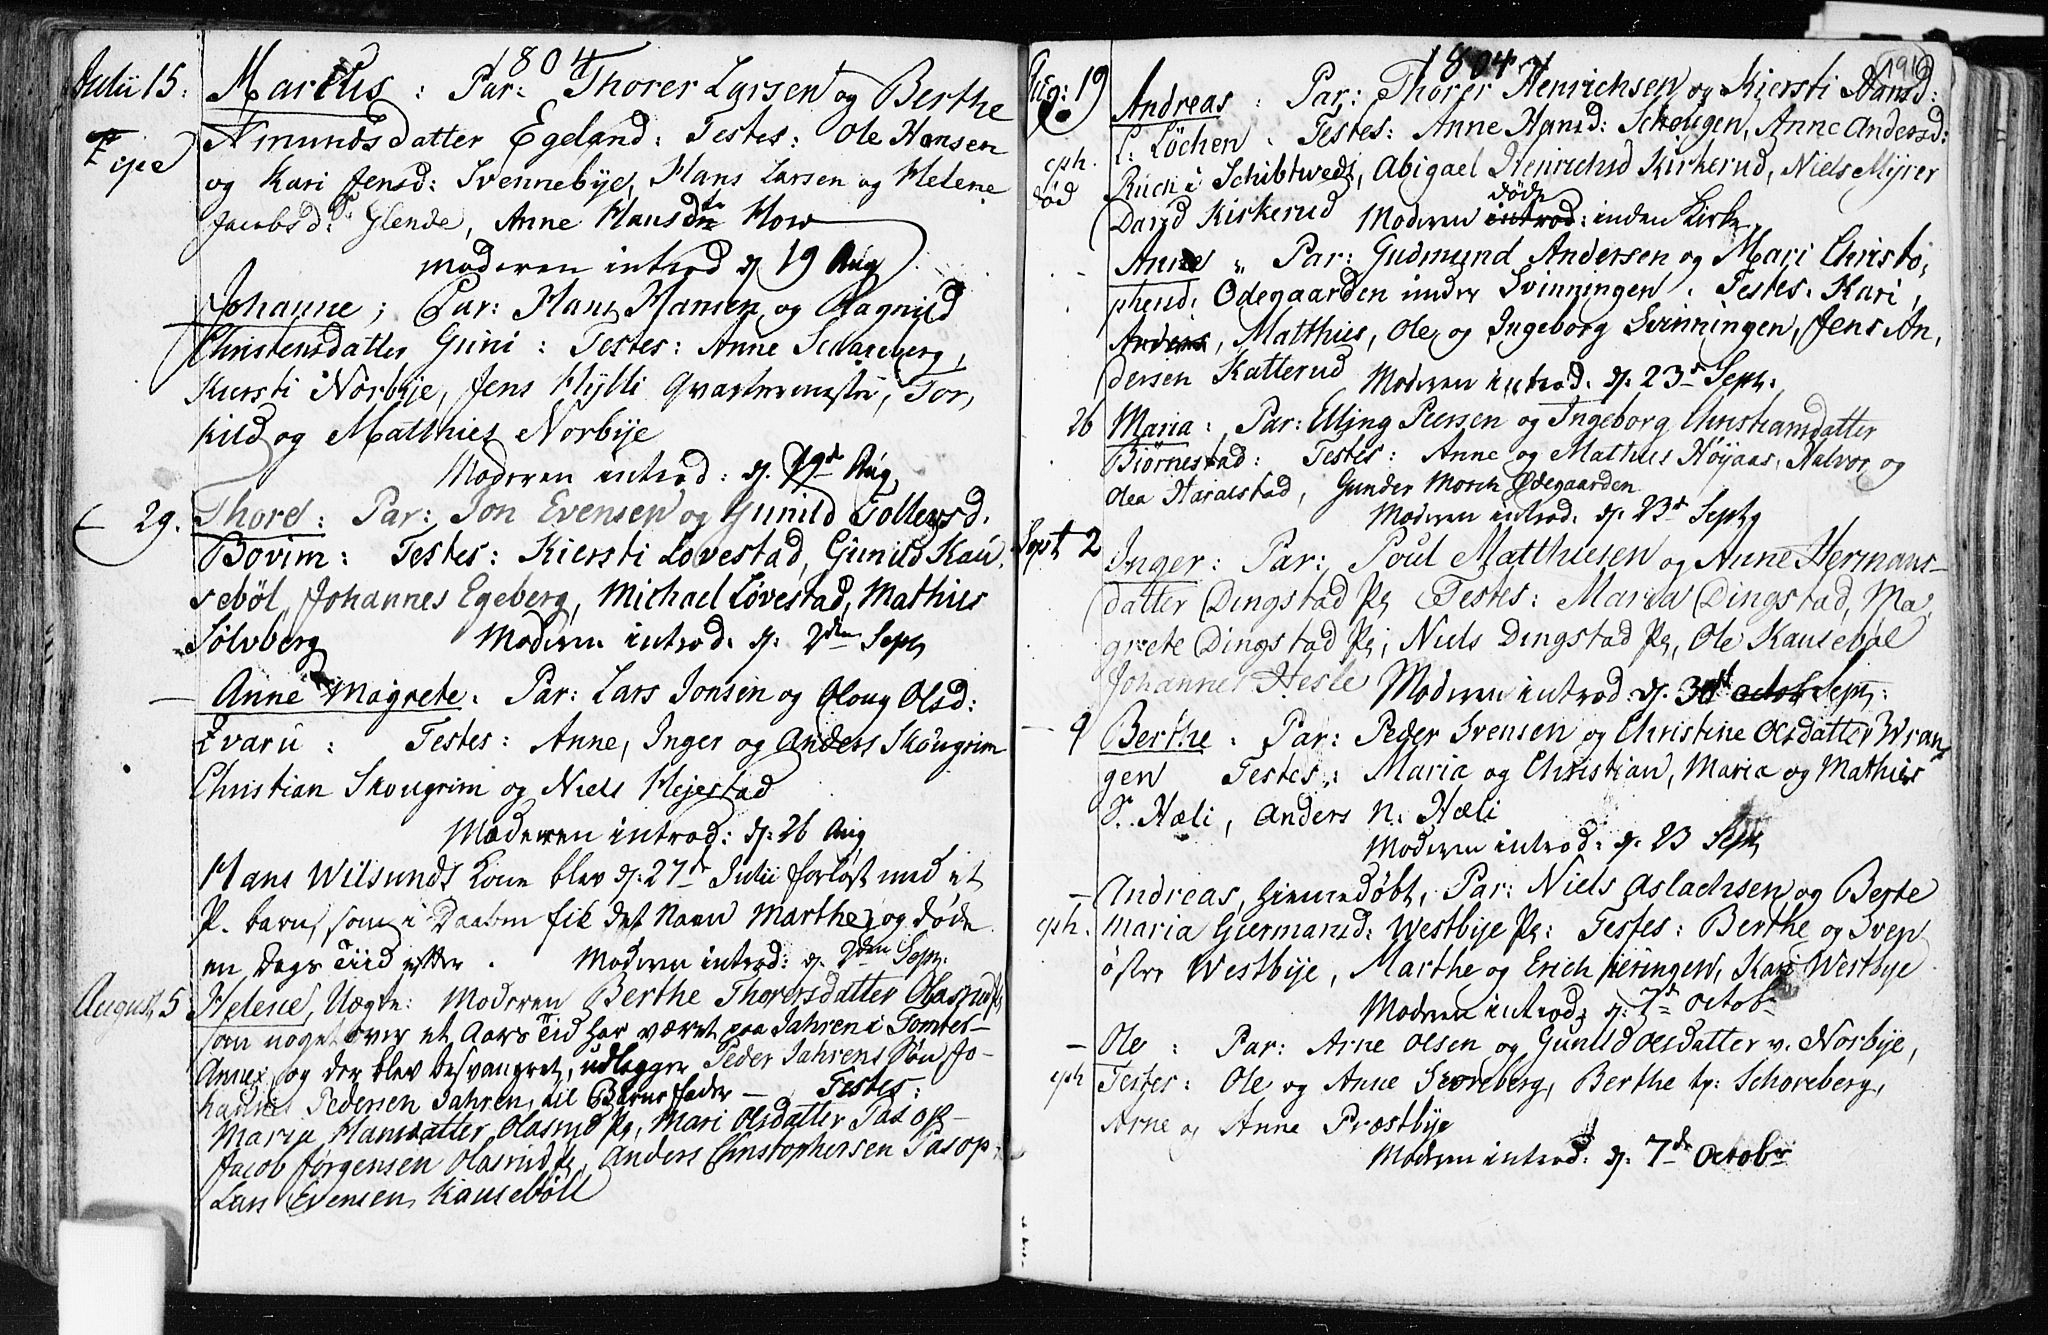 1804
Julii 15. Marcus : Par: Thorer Larsen og Berthe
Amundsdatter Egeland: Testes: Ole Hansen
og Kari Jensd: Svennebye, Hans Larsen og Helene
Jacobsd: Glende, Anne Hansdtr How
Moderen introd d. 19 Aug
Johanne; Par: Hans Hansen og Ragnild
Christensdatter Guni : Testes: Anne Schareberg,
Kiersti Norbye, Jens Hylli Qvartermester, Tor,
kild og Matthies Norbye
Moderen introd: d. 19de Aug
29. Thore: Par: Jon Evensen og Gunild Tollevsd.
Bovim: Testes: Kiersti Lovestad, Gunild Kau,
sebøl, Johannes Egeberg, Michael Lövestad, Mathies
Sølvberg Moderen introd: d. 2den Sept
— Anne Magrete: Par: Lars Jonsen og Oloug Olsd:
Evaru : Testes: Anne, Inger og Anders Skougrim
Christian Skougrim og Niels Hejestad
Moderen introd: d: 26 Aug
Hans Wilsunds Kone blev d. 27de Julii forløst med et
P. barn, som i Daaben fik det Navn Marthe, og døde
en Dags Tiid efter. Moderen introd: d. 2den Sept.
August 5 Helene, Uægte: Moderen Berthe Thorersdatter Olasrud
som noget over et Aars Tid har været paa Jahren i Tomter-
Annex, og der blev besvangret, udlegger Peder Jahrens Søn Jo-
hannes Pedersen Jahren, til Barnefader — Testes:
Maria Hansdatter Olasrud Pg, Mari Olsdatter Tasop-
Jacob Jørgensen Olasrud, Anders Christophersen Tasop:
Lars Evensen Kausebøll
1804
191
Aug: 19 Andreas : Par: Thorer Henrichsen og Kiersti Hansd:
eph. L: Löchen : Testes: Anne Hansd: Schougen, Anne Andersd:
død Ruch i Schibtwedt, Abigael Henrichsd Kirkerud, Niels Myrer
David Kirkerud Moderen døde introd: inden Kirk,
- Anne " Par: Gudmund Andersen og Mari Christo,
phersd: Odegaarden under Svinningen : Testes: Kari,
Anders, Matthies, Ole, og Ingeborg Svinningen, Jens An,
dersen Katterud Moderen introd: d. 23de Sept.
26 Maria: Par: Elling Peersen og Ingeborg Christiansdatter
Biørnestad: Testes: Anne og Mathies Höyaas, Halvor og
Olea Haralstad, Gunder Mosch Ødegaarden
Moderen introd: d. 23de Sept
Sept 2 Inger: Par: Poul Matthiesen og Anne Hermans-
datter Dingstad Pg Testes: Maria Dingstad, Ma,
grete Dingstad Pg, Niels Dingstad Pg, Ole Kausebøl
Johannes Hesle Moderen introd d. 30te octob Sept:
— 9 Berthe: Par: Peder Svensen og Christine Olsdatter Wran
gen Testes: Maria og Christian, Maria og Mathies
S. Hæli, Anders N: Hæli
Moderen introd: d. 23 Sept
— Andreas, hiemmedøbt, Par: Niels Aslachsen og Berte
eph. Maria Giermansd: Westbye Pg: Testes: Berthe og Sven
østre Westbye, Marthe og Erich Heringen, Kari Westbye
Moderen introd: d. 7de Octobr
— Ole : Par: Arne Olsen og Gunild Olsdatter v. Norbye,
eph Testes: Ole og Anne Skoreberg, Berthe Schoreberg,
Arne og Anne Præstbye
Moderen introd: d. 7de Octobr